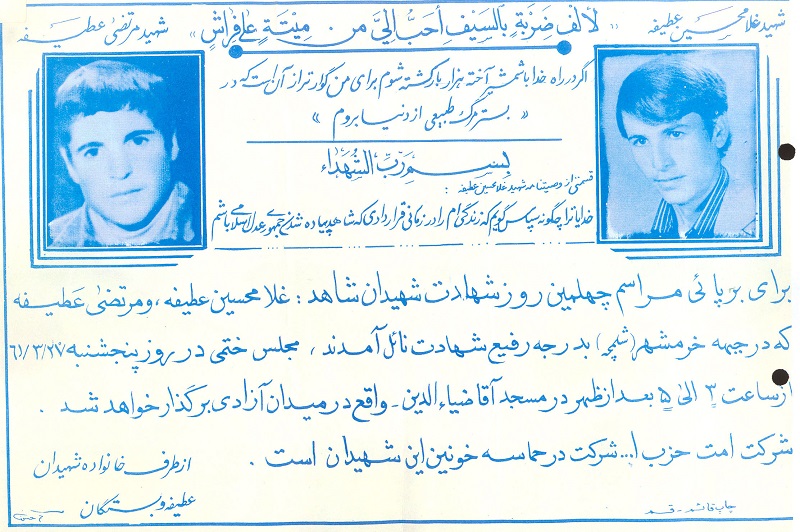 شهید غلامحسین عطیفه
« لألف ضربةٍ بالسیف أحبُّ إليَّ من مِیتةٍ علی فِراشٍ »
شهید مرتضی عطیفه
اگر در راه خدا با شمشیر آخته هزار بار کشته شوم برای من گواراتر از آن است که در
« بستر مرگ طبیعی از دنیا بروم »
بسم رب الشهداء
قسمتی از وصیتنامه شهید غلامحسین عطیفه :
خدایا ترا چگونه سپاس گویم که زندگی ام را در زمانی قرار دادی که شاهد پیاده شدن جمهوری عدل اسلامی باشم
برای برپائی مراسم چهلمین روز شهادت شهیدان شاهد : غلامحسین عطیفه ، و مرتضی عطیفه
که در جبهه خرمشهر (شلمچه) بدرجه رفیع شهادت نائل آمدند ، مجلس ختمی در روز پنجشنبه ۶۱/۳/۲۷
از ساعت ۳ الی ۵ بعد از ظهر در مسجد آقا ضیاء الدین - واقع در میدان آزادی برگذار خواهد شد .
شرکت امت حزب ا... شرکت در حماسه خونین این شهیدان است .
از طرف خانواده شهیدان
عطیفه و بستگان
چاپ قائم - قم